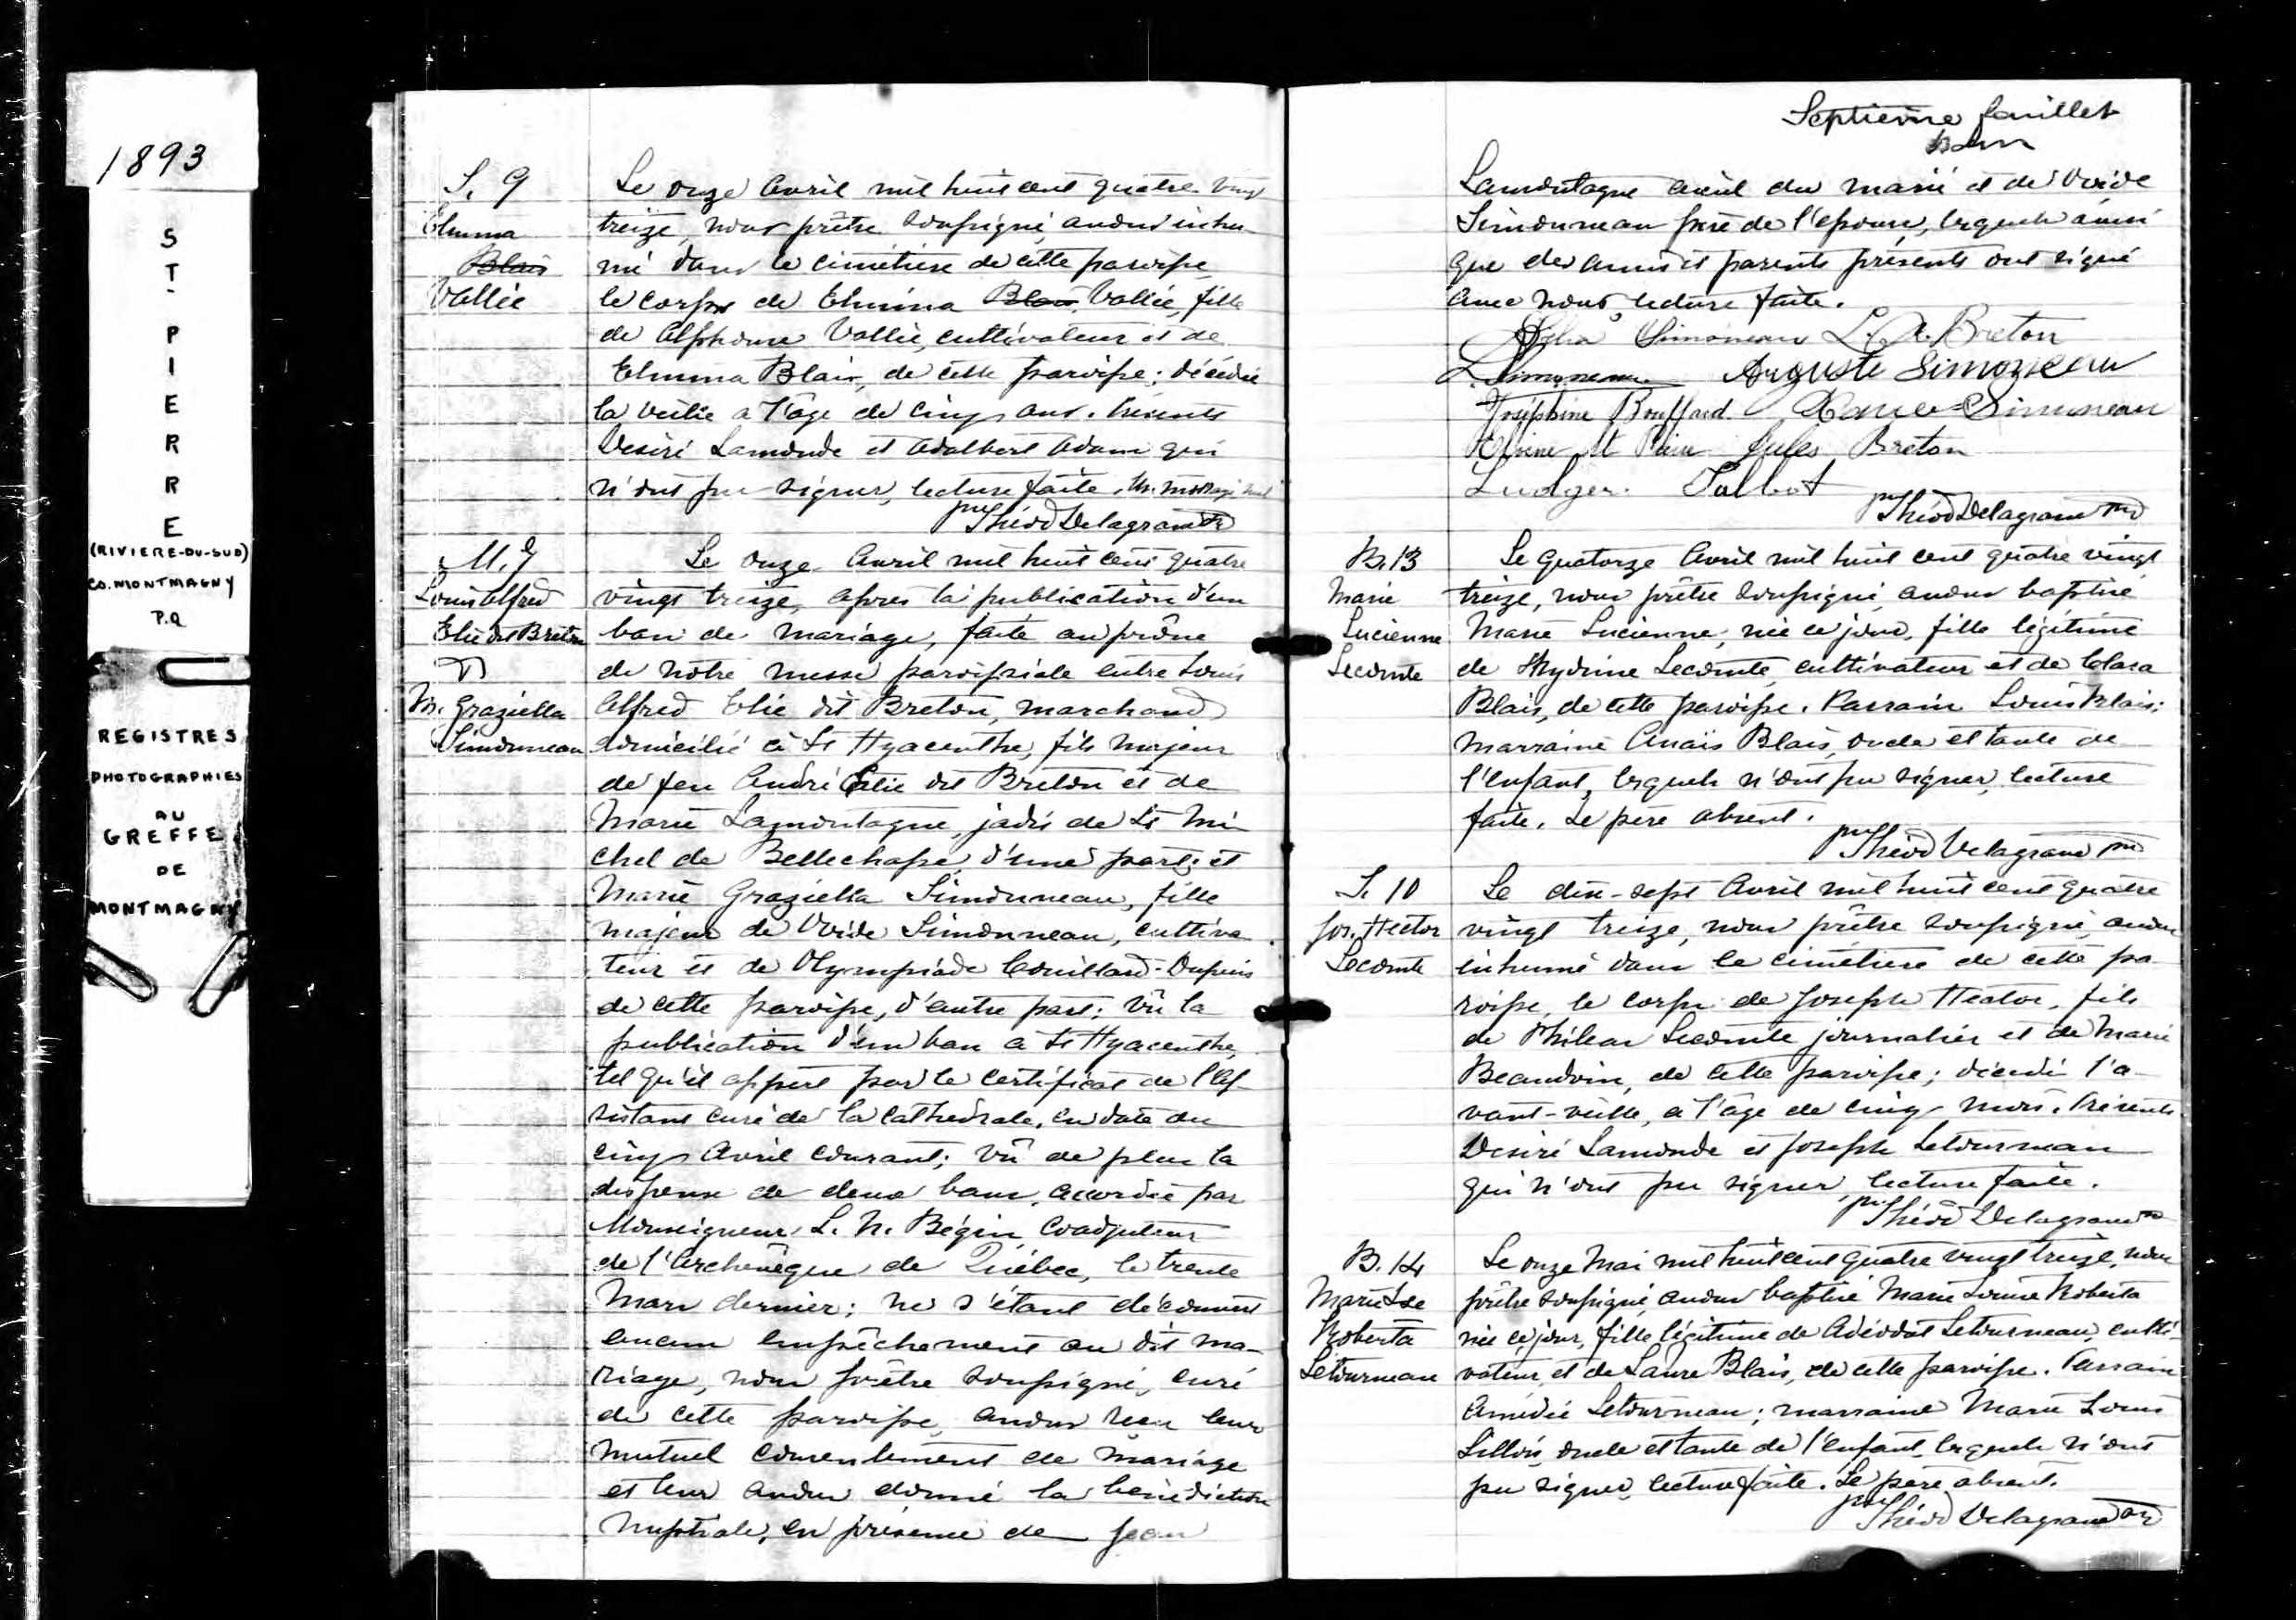 1893
ST-PIERRE
(RIVIERE-DU-SUD)
CO. MONTMAGNY
P.Q
REGISTRES
PHOTOGRAPHIES
AU
GREFFE
DE
MONTMAGNY
S. 9
Elmina
Blais
Vallée
Le onze Avril mil huit cent quatre vingt
treize, nous prêtre soussigné, avons inhu-
mé dans le cimetière de cette paroisse
le corps de Elmina Blais Vallée, fille
de Alphonse Vallée, cultivateur et de
Elmina Blais, de cette paroisse; décédée
la veille a l'âge de cinq ans. Présents
Désiré Lamonde et Adalbert Adam qui
n'ont pu signer, lecture faite. Un mot rayé nul
Théod Delagrave
M. 7
Louis Alfred
Elie dit Breton
M. Graziella
Simonneau
Le onze Avril mil huit cent quatre
vingt treize, après la publication d'un
ban de mariage, faite au prône
de notre messe paroissiale entre Louis
Alfred Elie dit Breton, marchand
domicilié à St Hyacenthe, fils majeur
de feu André Elie dit Breton et de
Marie Lamontagne, jadis de St Mi-
chel de Bellechasse, d'une part; et
Marie Graziella Simonneau, fille
majeur de Ovide Simonneau, cultiva-
teur et de Olympiade Couillard-Dupuis
de cette paroisse, d'autre part: vû la
publication d'un ban à St Hyacenthe,
tel qu'il appert par le certificat de l'As-
sistant curé de la Cathédrale, en date du
cinq Avril courant; vû de plus la
dispense de deux bans, accordée par
Monseigneur L. N. Bégin, Coadjuteur
de l'Archevêque de Québec, le trente
Mars dernier; ne s'étant découvert
aucun empêchement au dit ma-
riage, nous prêtre soussigné, curé
de cette paroisse, avons reçu leur
mutuel consentement de mariage
et leur avons donné la bénédiction
nuptiale, en présence de Jean
Septième feuillet
Lamontagne aieul du marié et de Ovide
Simonneau père de l'épouse, lesquels ainsi
que des amis et parents présents ont signé
avec nous, lecture faite.
Simoneau L. A. Breton
Simoneau Auguste Simoneau
Joséphine Bouffard Simoneau
St Pierre Jules Breton
Ludger Talbot
Théod Delagrave
B. 13
Marie
Lucienne
Lecomte
Le quatorze Avril mil huit cent quatre vingt
treize, nous prêtre soussigné avons baptisé
Marie Lucienne, née ce jour, fille légitime
de Lecomte, cultivateur et de Clara
Blais, de cette paroisse. Parrain Louis Blais;
marraine Anaïs Blais, oncle et tante de
l'enfant, lesquels n'ont pu signer, lecture
faite. Le père absent.
Théod Delagrave
S. 10
Jos. Hector
Lecomte
Le dix-sept Avril mil huit cent quatre
vingt treize, nous prêtre soussigné, avons
inhumé dans le cimetière de cette pa-
roisse, le corps de Joseph Hector, fils
de Philéas Lecomte journalier et de Marie
Beaudoin, de cette paroisse; décédé l'a-
vant-veille, à l'âge de cinq mois. Présents
Désiré Lamonde et Joseph Letourneau
qui n'ont pu signer, lecture faite.
Théod Delagrave
B. 14
Marie Lse
Roberta
Letourneau
Le onze Mai mil huit cent quatre vingt treize, nous
prêtre soussigné avons baptisé Marie Louise Roberta
née ce jour, fille légitime de Adéodat Letourneau, culti-
vateur, et de Laure Blais, de cette paroisse. Parrain
Amédée Letourneau; marraine Marie Louise
oncle et tante de l'enfant, lesquels n'ont
pu signer, lecture faite. Le père absent.
Théod Delagrave